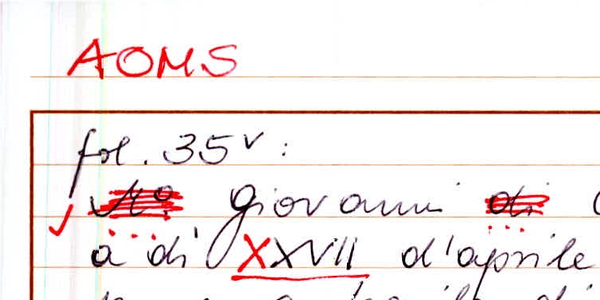 AOMS
fol. 35v :
Mo Giovanni di
a di XXVII d'aprile